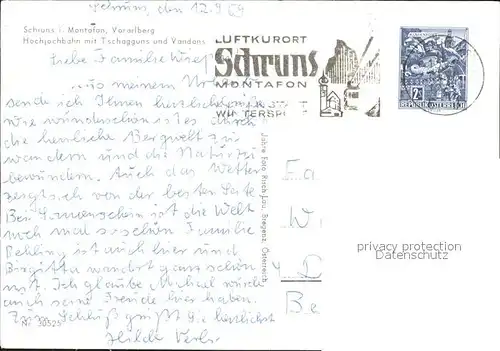 Schruns, den 12.9.69
Schruns i. Montafon, Vorarlberg
Hochjochbahn mit Tschagguns und Vandans
Liebe Familie
LUFTKURORT
Schruns
MONTAFON
WINTERSP
2S
REPUBLIK ÖSTERREICH
aus meinem
sende ich Ihnen herzlichste
wie wunderschön ist es durch
die herrliche Bergwelt zu
wandern und die Natur zu
bewundern. Auch das Wetter
zeigt sich von der besten Seite
Bei Sonnenschein ist die Welt
noch mal so schön Familie
Behling ist auch hier und
Birgitta wandert ganz schön
mit. Ich glaube Michael würde
auch seine Freude hier haben.
Zum Schluß grüßt Sie herzlichst
Hilde
Nr. 30525
Jahre Foto Risch-Lau, Bregenz, Österreich
Fa
W
D
Be
privacy protection
Datenschutz